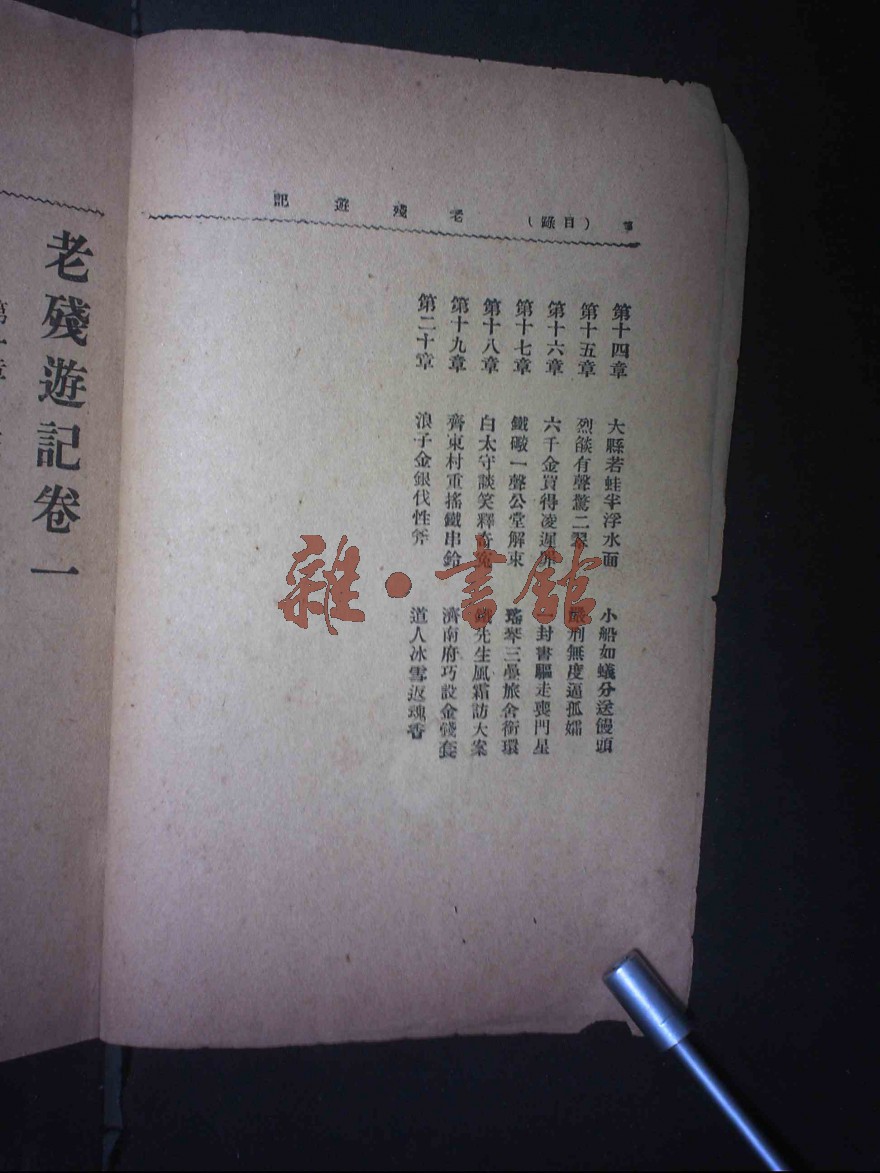 老殘遊記（目錄）
第十四章　大縣若蛙半浮水面　小船如蟻分送饅頭
第十五章　烈燄有聲驚二翠　嚴刑無度逼孤孀
第十六章　六千金買得凌遲罪　一封書驅走喪門星
第十七章　鐵礮一聲公堂解束　瑤琴三疊旅舍銜環
第十八章　白太守談笑釋奇冤　鐵先生風霜訪大案
第十九章　齊東村重搖鐵串鈴　濟南府巧設金錢套
第二十章　浪子金銀伐性斧　道人冰雪返魂香
老殘遊記卷一
雜·書館